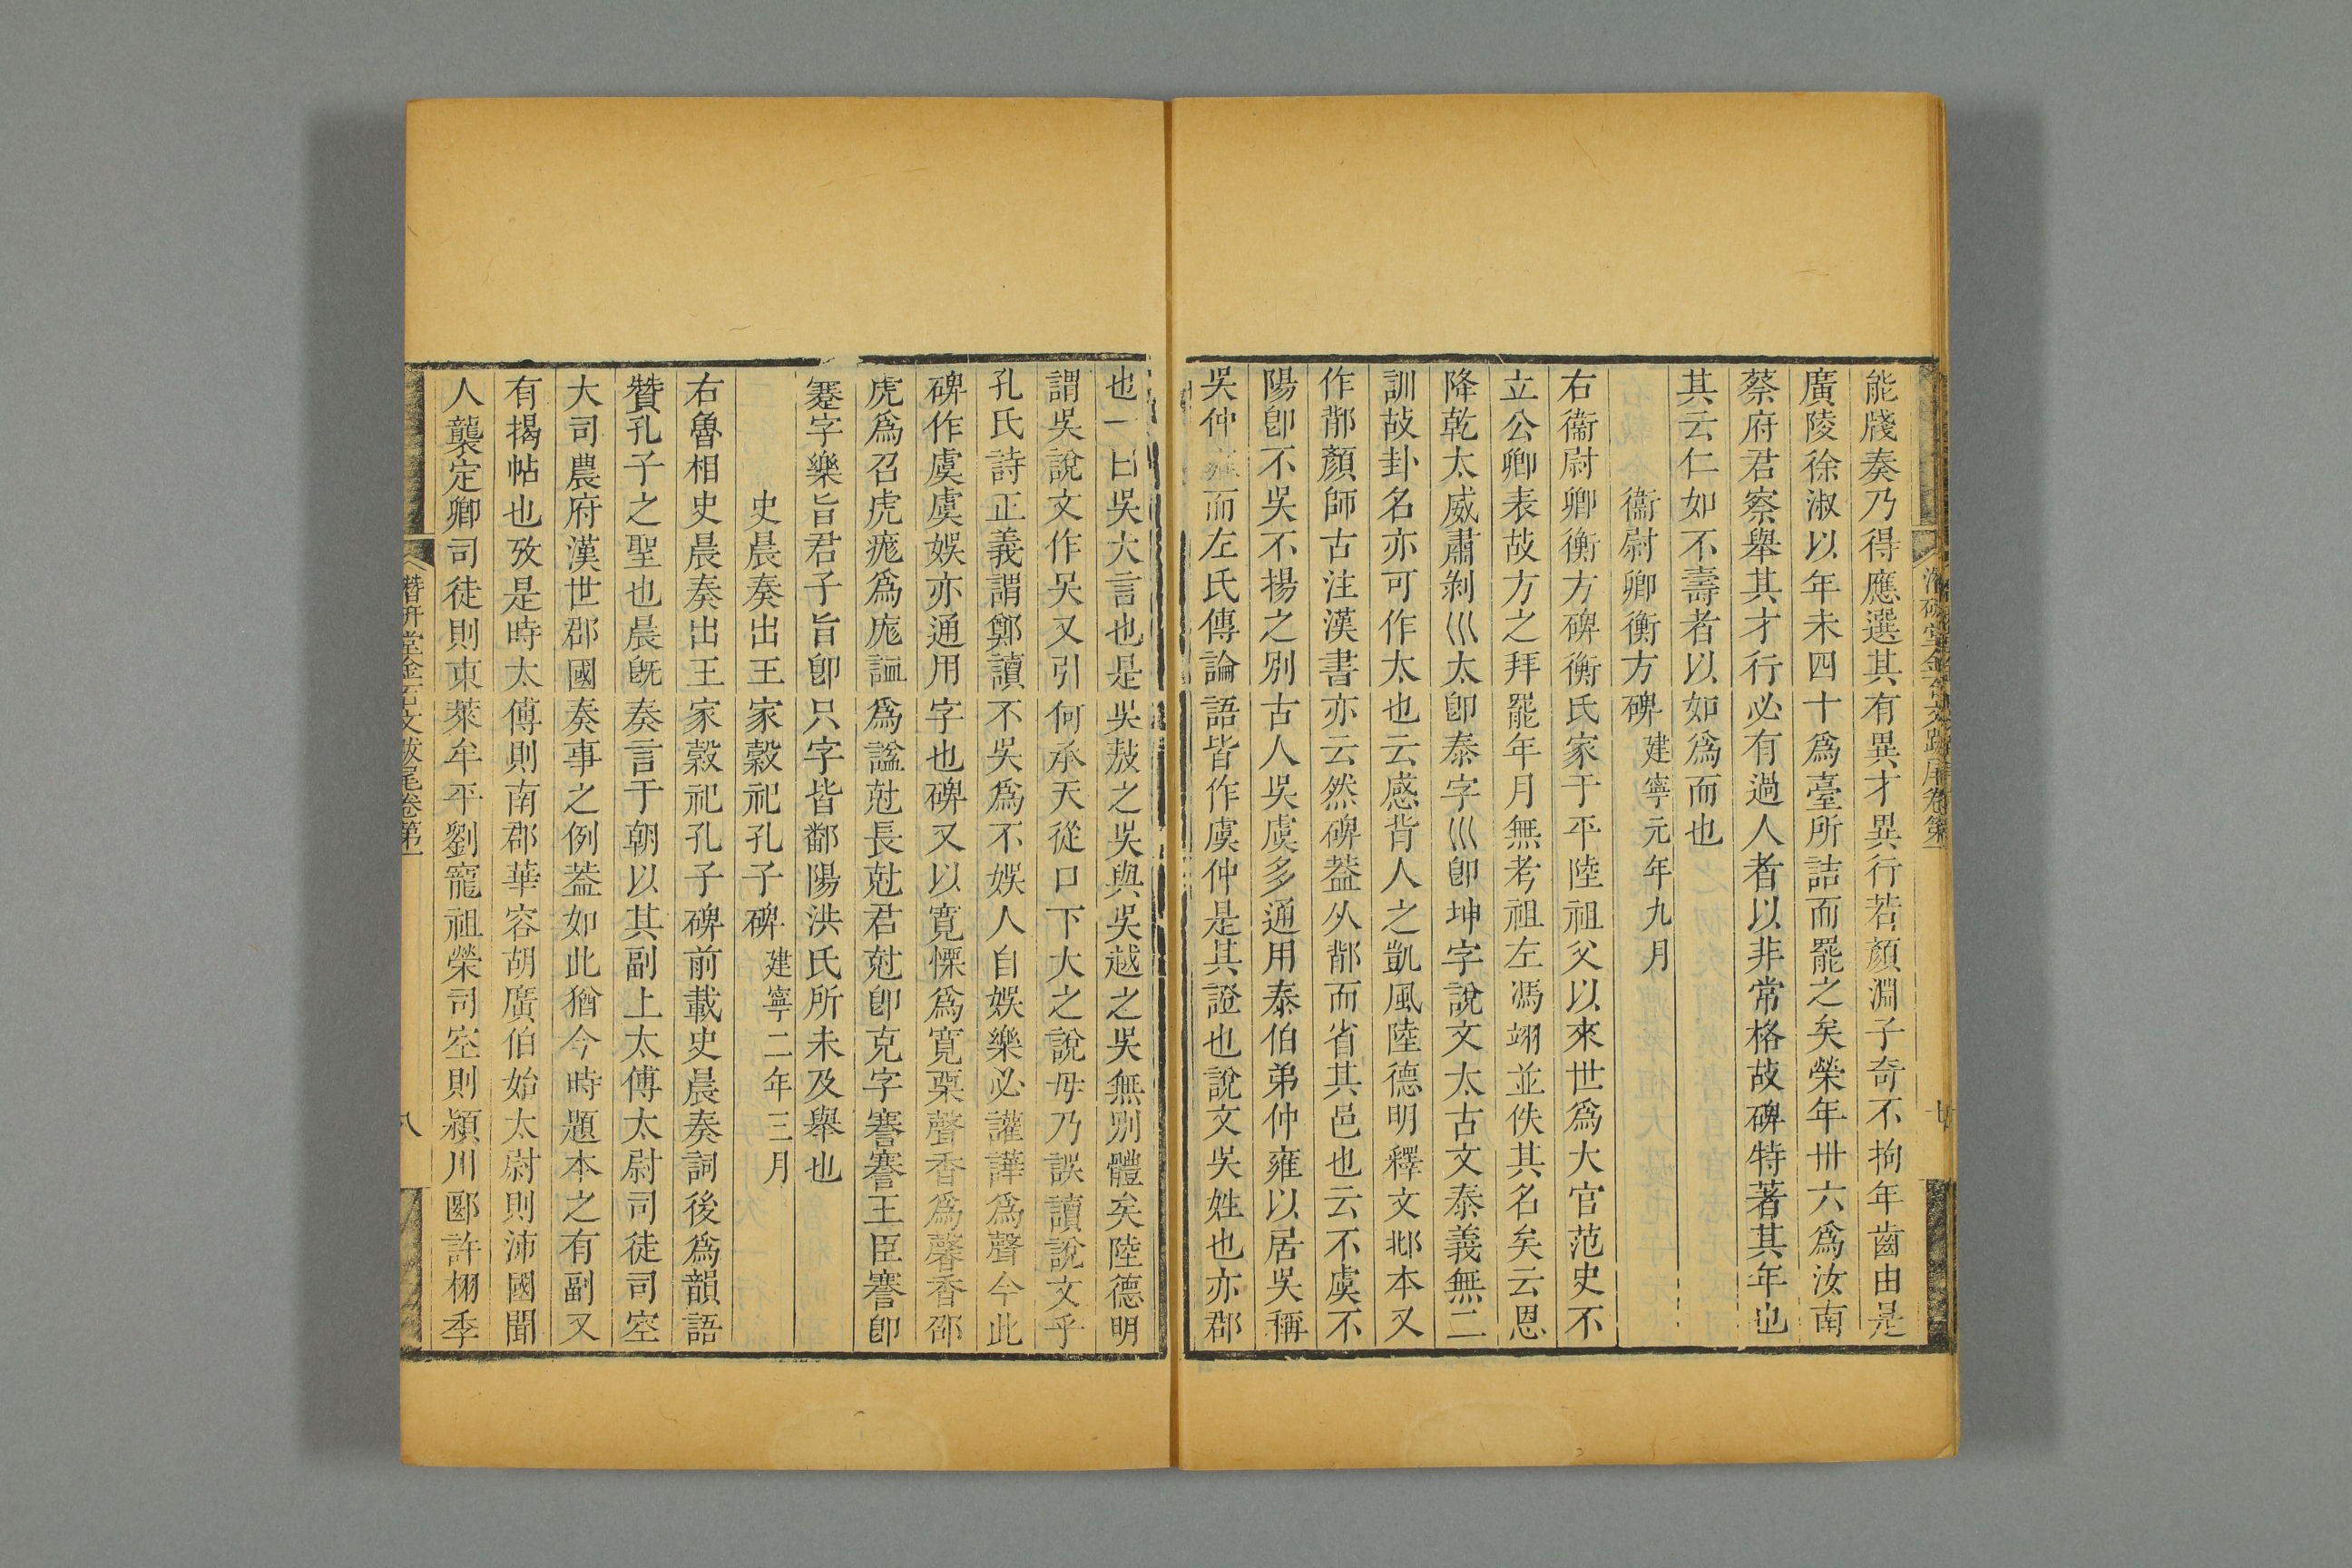 能牋奏乃得應選其有異才異行若顏淵子奇不拘年齒由是
廣陵徐淑以年未四十爲臺所詰而罷之矣榮年卅六爲汝南
蔡府君察舉其才行必有過人者以非常格故碑特著其年也
其云仁如不壽者以如爲而也
衞尉卿衡方碑建寧元年九月
右衞尉卿衡方碑衡氏家于平陸祖父以來世爲大官范史不
立公卿表故方之拜罷年月無考祖左馮翊並佚其名矣云恩
降乾太威肅剝巛太卽泰字巛卽坤字說文太古文泰義無二
訓故卦名亦可作太也云感背人之凱風陸德明釋文邶本又
作鄁顏師古注漢書亦云然碑葢从鄁而省其邑也云不虞不
陽卽不吳不揚之別古人吳虞多通用泰伯弟仲雍以居吳稱
吳仲雍而左氏傳論語皆作虞仲是其證也說文吳姓也亦郡
也一曰吳大言也是吳敖之吳與吳越之吳無別體矣陸德明
謂吳說文作吴又引何承天從口下大之說毋乃誤讀說文乎
孔氏詩正義謂鄭讀不吳爲不娛人自娛樂必讙譁爲聲今此
碑作虞虞娛亦通用字也碑又以寛慄爲寬栗聲香爲馨香邵
虎爲召虎㾱爲庬謚爲謐尅長尅君尅卽克字謇謇王臣謇卽
蹇字樂旨君子旨卽只字皆鄱陽洪氏所未及舉也
史晨奏出王家穀祀孔子碑建寧二年三月
右魯相史晨奏出王家穀祀孔子碑前載史晨奏詞後爲韻語
贊孔子之聖也晨旣奏言于朝以其副上太傅太尉司徒司空
大司農府漢世郡國奏事之例葢如此猶今時題本之有副又
有揭帖也攷是時太傅則南郡華容胡廣伯始太尉則沛國聞
人襲定卿司徒則東萊牟平劉寵祖榮司空則潁川郾許栩季
潛研堂金石文跋尾卷第一
八